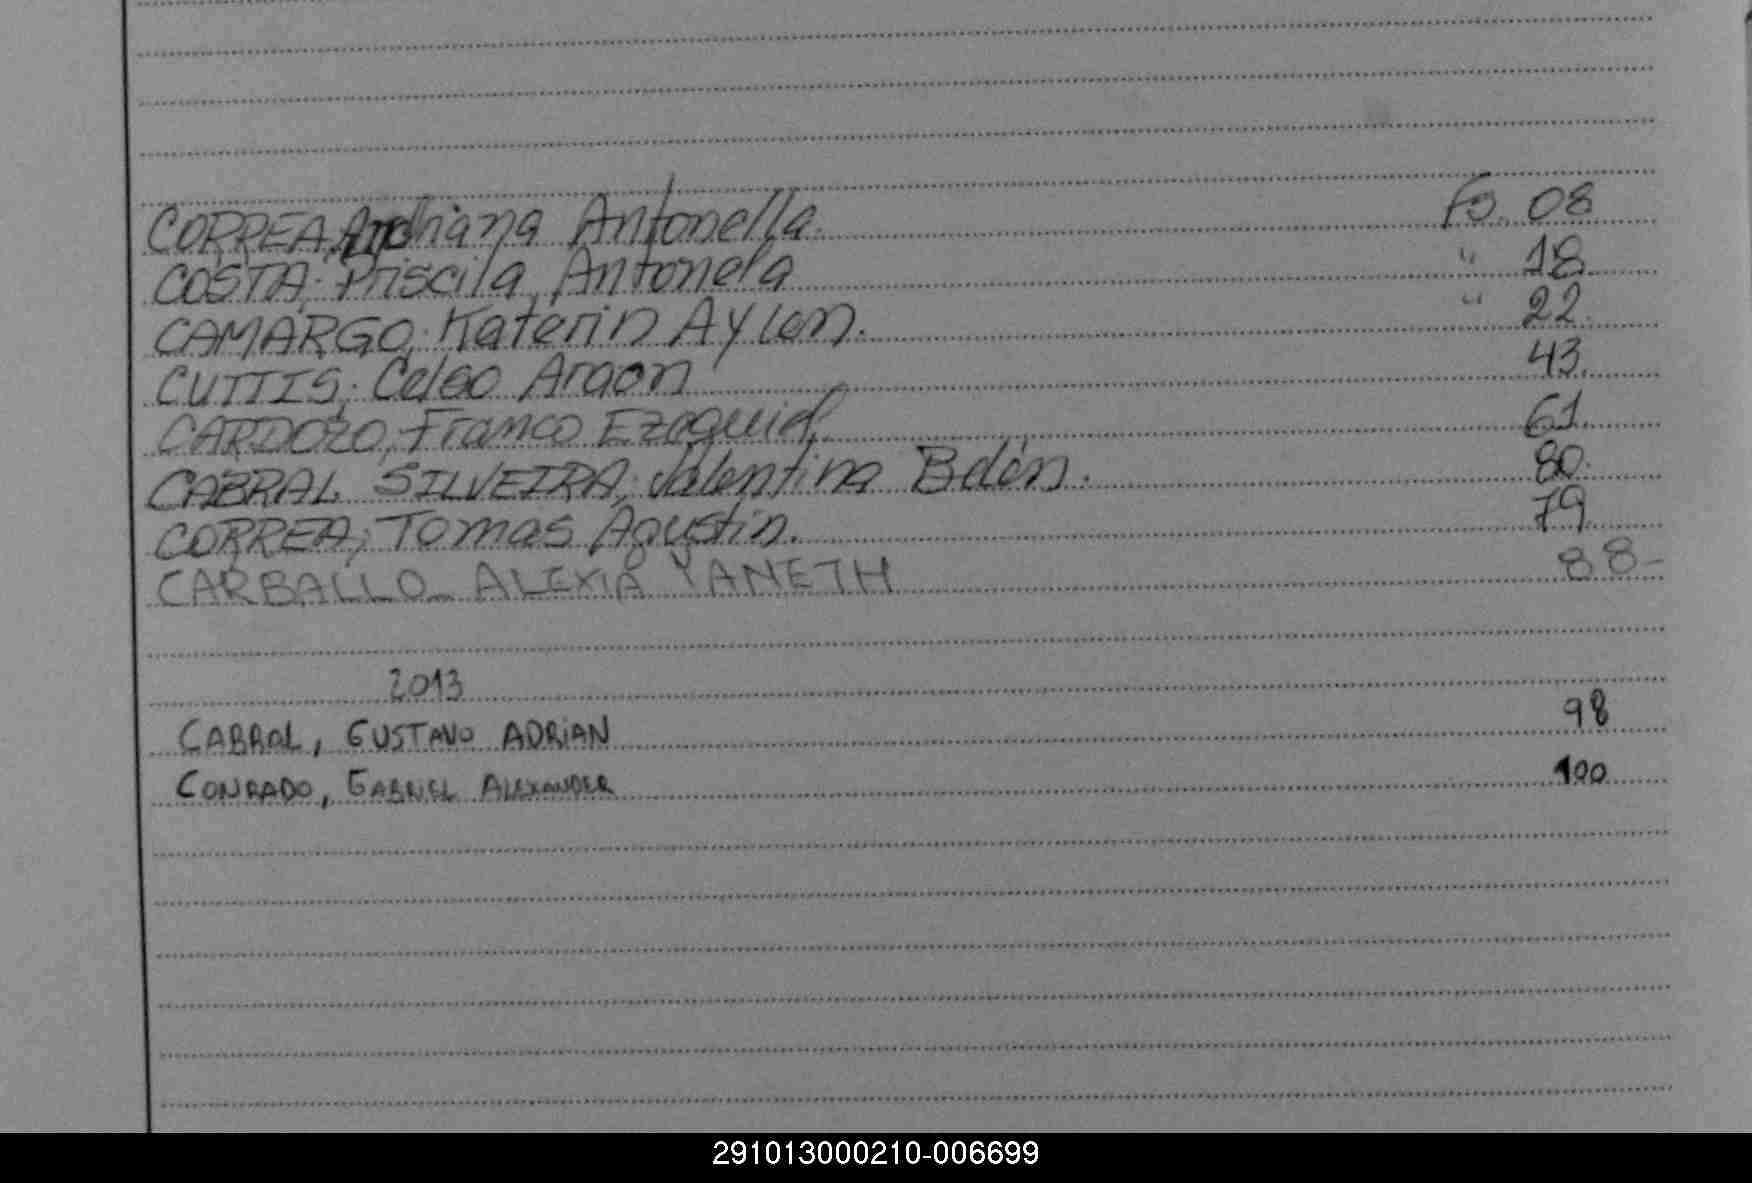 CORREA, Adriana Antonella. Fo. 08
COSTA; Priscila, Antonela " 18
CAMARGO; Katerin Aylen. " 22.
CUTTIS; Celso Araon 43.
CARDOZO, Franco Ezequiel, 61.
CABRAL SILVEIRA; Valentina Belén. 80.
CORREA; Tomas Agustin. 79
CARBALLO ALEXIA YANETH 88-
2013
CABRAL, GUSTAVO ADRIAN 98
CONRADO, GABRIEL ALEXANDER 100
291013000210-006699